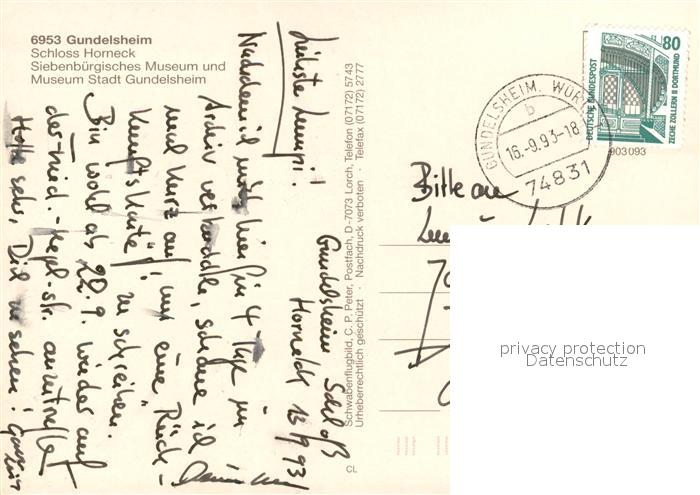 6953 Gundelsheim
Schloss Horneck
Siebenbürgisches Museum und
Museum Stadt Gundelsheim
Gundelsheim Schloß
Horneck 13.9.93
Nachdem ich mich hier für 4 Tge im
Archiv verbuddle, schaue ich
mal kurz auf, um eine
zu schreiben.
Bin wohl ab 22.9. wieder auf
der anzutreffen
Hoffe sehr, Dich zu sehen!
Schwabenflugbild, C. P. Peter, Postfach, D-7073 Lorch, Telefon (07172) 5743
Urheberrechtlich geschützt · Nachdruck verboten · Telefax (07172) 2777
CL
GUNDELSHEIM, WÜRTT
b
16.-9.93-18
74831
80
DEUTSCHE BUNDESPOST
ZECHE ZOLLERN II DORTMUND
903 093
Bitte an
privacy protection
Datenschutz